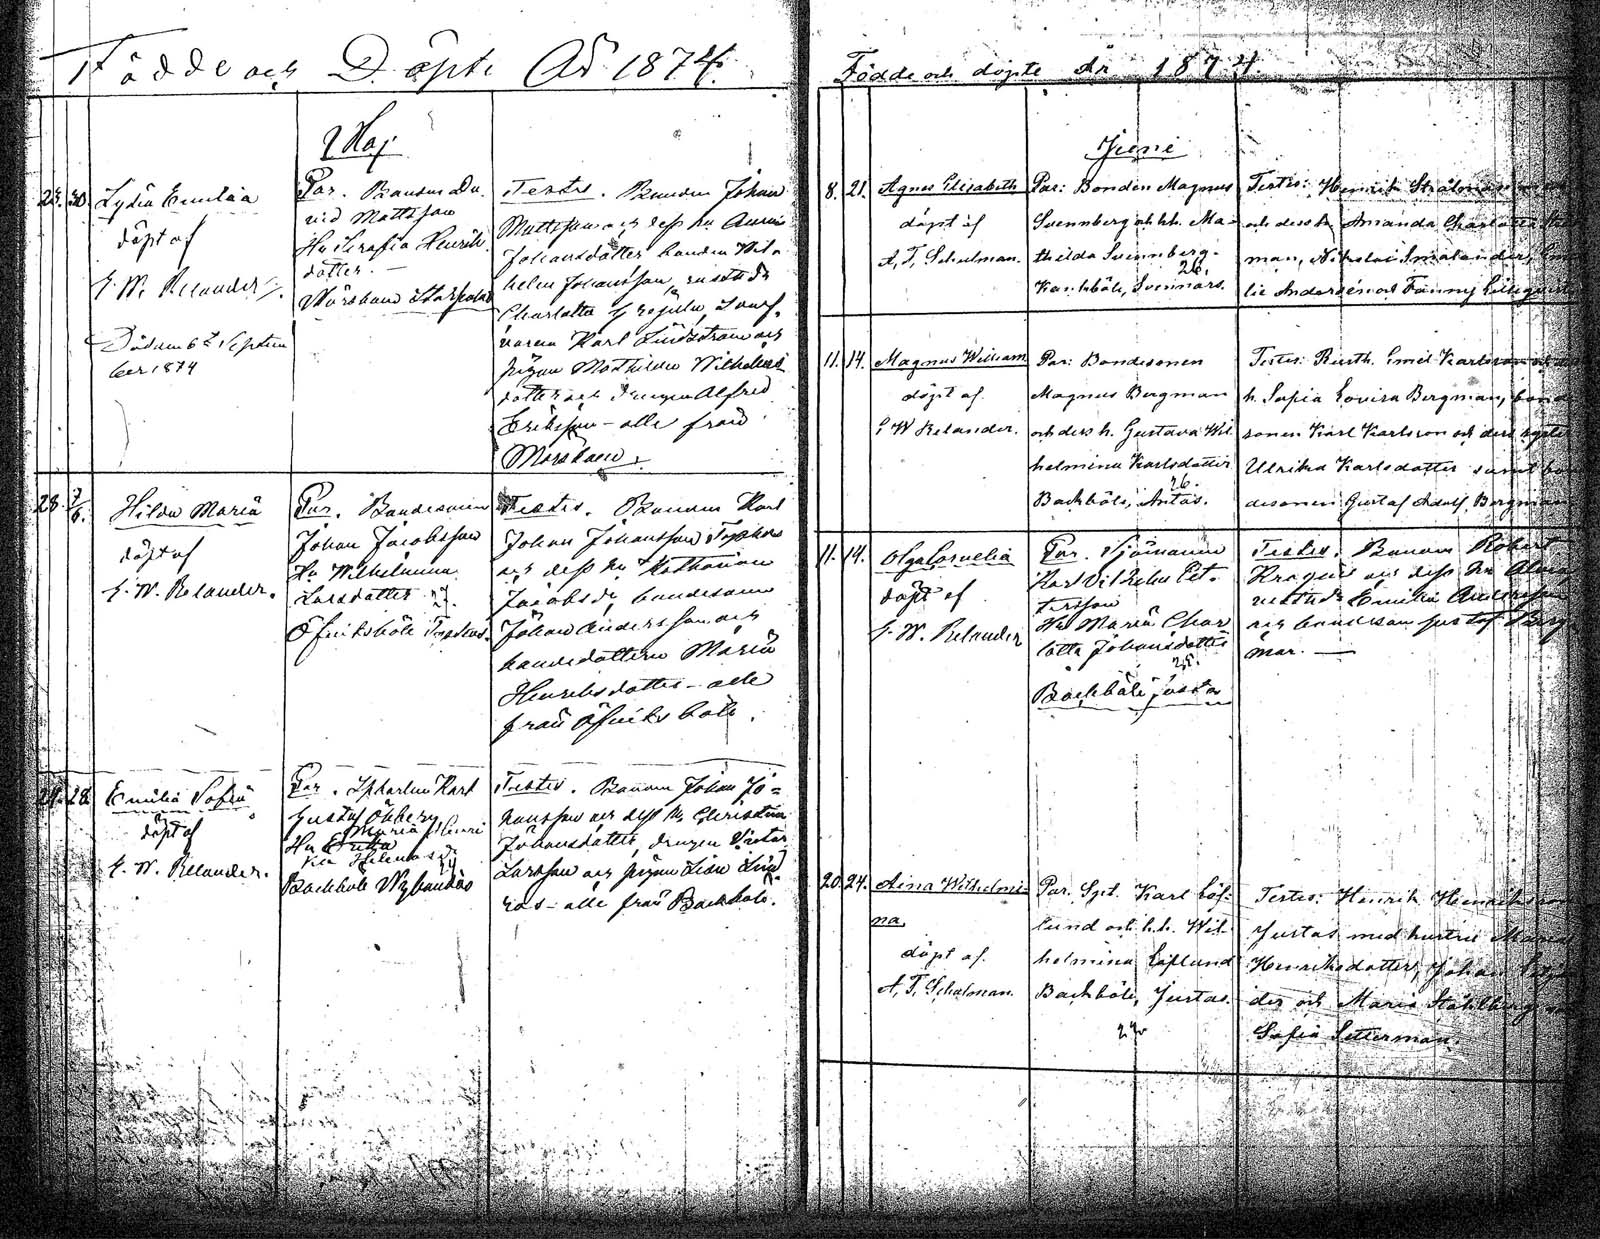 Födde och Döpte År 1874.
Maj
23. 30. Lydia Emilia
döpt af
E. W. Relander.
Död den 6te Septem
ber 1874
Par. Bonden Da
vid Mattsson
Hu Serafia Henriks
dotter.
Mörskom
Testes. Bonden Johan
Mattsson och dess hu Anna
Johansdotter bonden Wil-
helm Johansson,
Charlotta
Karl Lindström och
pigan Mathilda Wilhelms
dotter och drengen Alfred
Eriksson - alla från
Mörskom.
28 7/6. Hilda Maria
döpt af
E. W. Relander.
Par. Bondesonen
Johan Jacobsson
Hu Wilhelmina
Larsdotter 27.
Öfveiksböle Topkas.
Testes. Bonden Karl
Johan Johansson Topkas
och dess hu Katharina
Jacobsd. bondesonen
Johan Andersson och
bondedottern Maria
Henriksdotter - alla
från Öfveiksböle.
24. 28 Emilia Sofia
döpt af
E. W. Relander.
Par. Karl
Gustaf Öhberg
Maria Henri
Hu
Backböle Nybondas
Testes. Bonden Johan Jo=
hansson och dess hu Christina
Johansdotter, drengen Victor
Larsson och pigan Lisa Lind
ros - alla från Backböle.
Födde och döpte År 1874.
Juni
8. 21. Agnes Elisabeth
döpt af
A. T. Schulman.
Par: Bonden Magnus
Svennberg och h.h. Ma-
thilda Svennberg.
26.
Backböle, Svennars.
Testes: Henrik Stråhlman
och dess h. Amanda Charlotta Stråhl
man, Nikolai Smolander, Emi
lie Andersén och Fanny Lillqvist
11. 14. Magnus William
döpt af.
E W Relander.
Par: Bondesonen
Magnus Bergman
och dess h. Gustava Wil
helmina Karlsdotter
26.
Backböle, Antas.
Testes: Rusth. Emil Karlsson och dess
h. Sofia Lovisa Bergman, bonde
sonen Karl Karlsson och dess syster
Ulrika Karlsdotter samt bon
desonen Gustaf Adolf Bergman
11. 14. Olga Cornelia
döpt af
E. W. Relander
Par. Sjömannen
Karl Vilhelm Pet-
tersson
Hu Maria Char
lotta Johansdotter
25.
Backböle Justas
Testes. Bonden Robert
Krogius och dess hu Alma
Emilia Andersson
och bondeson Gustaf Berg
man. —
20. 24. Aina Wilhelmi-
na,
döpt af.
A. T. Schulman.
Par. Sgt. Karl Löf-
lund och h.h. Wil-
helmina Löflund
Backböle, Justas.
Testes: Henrik Henriksson
Justas med hustru Maria
Henriksdotter, Johan
der och Maria Ståhlberg
Sofia Setterman.